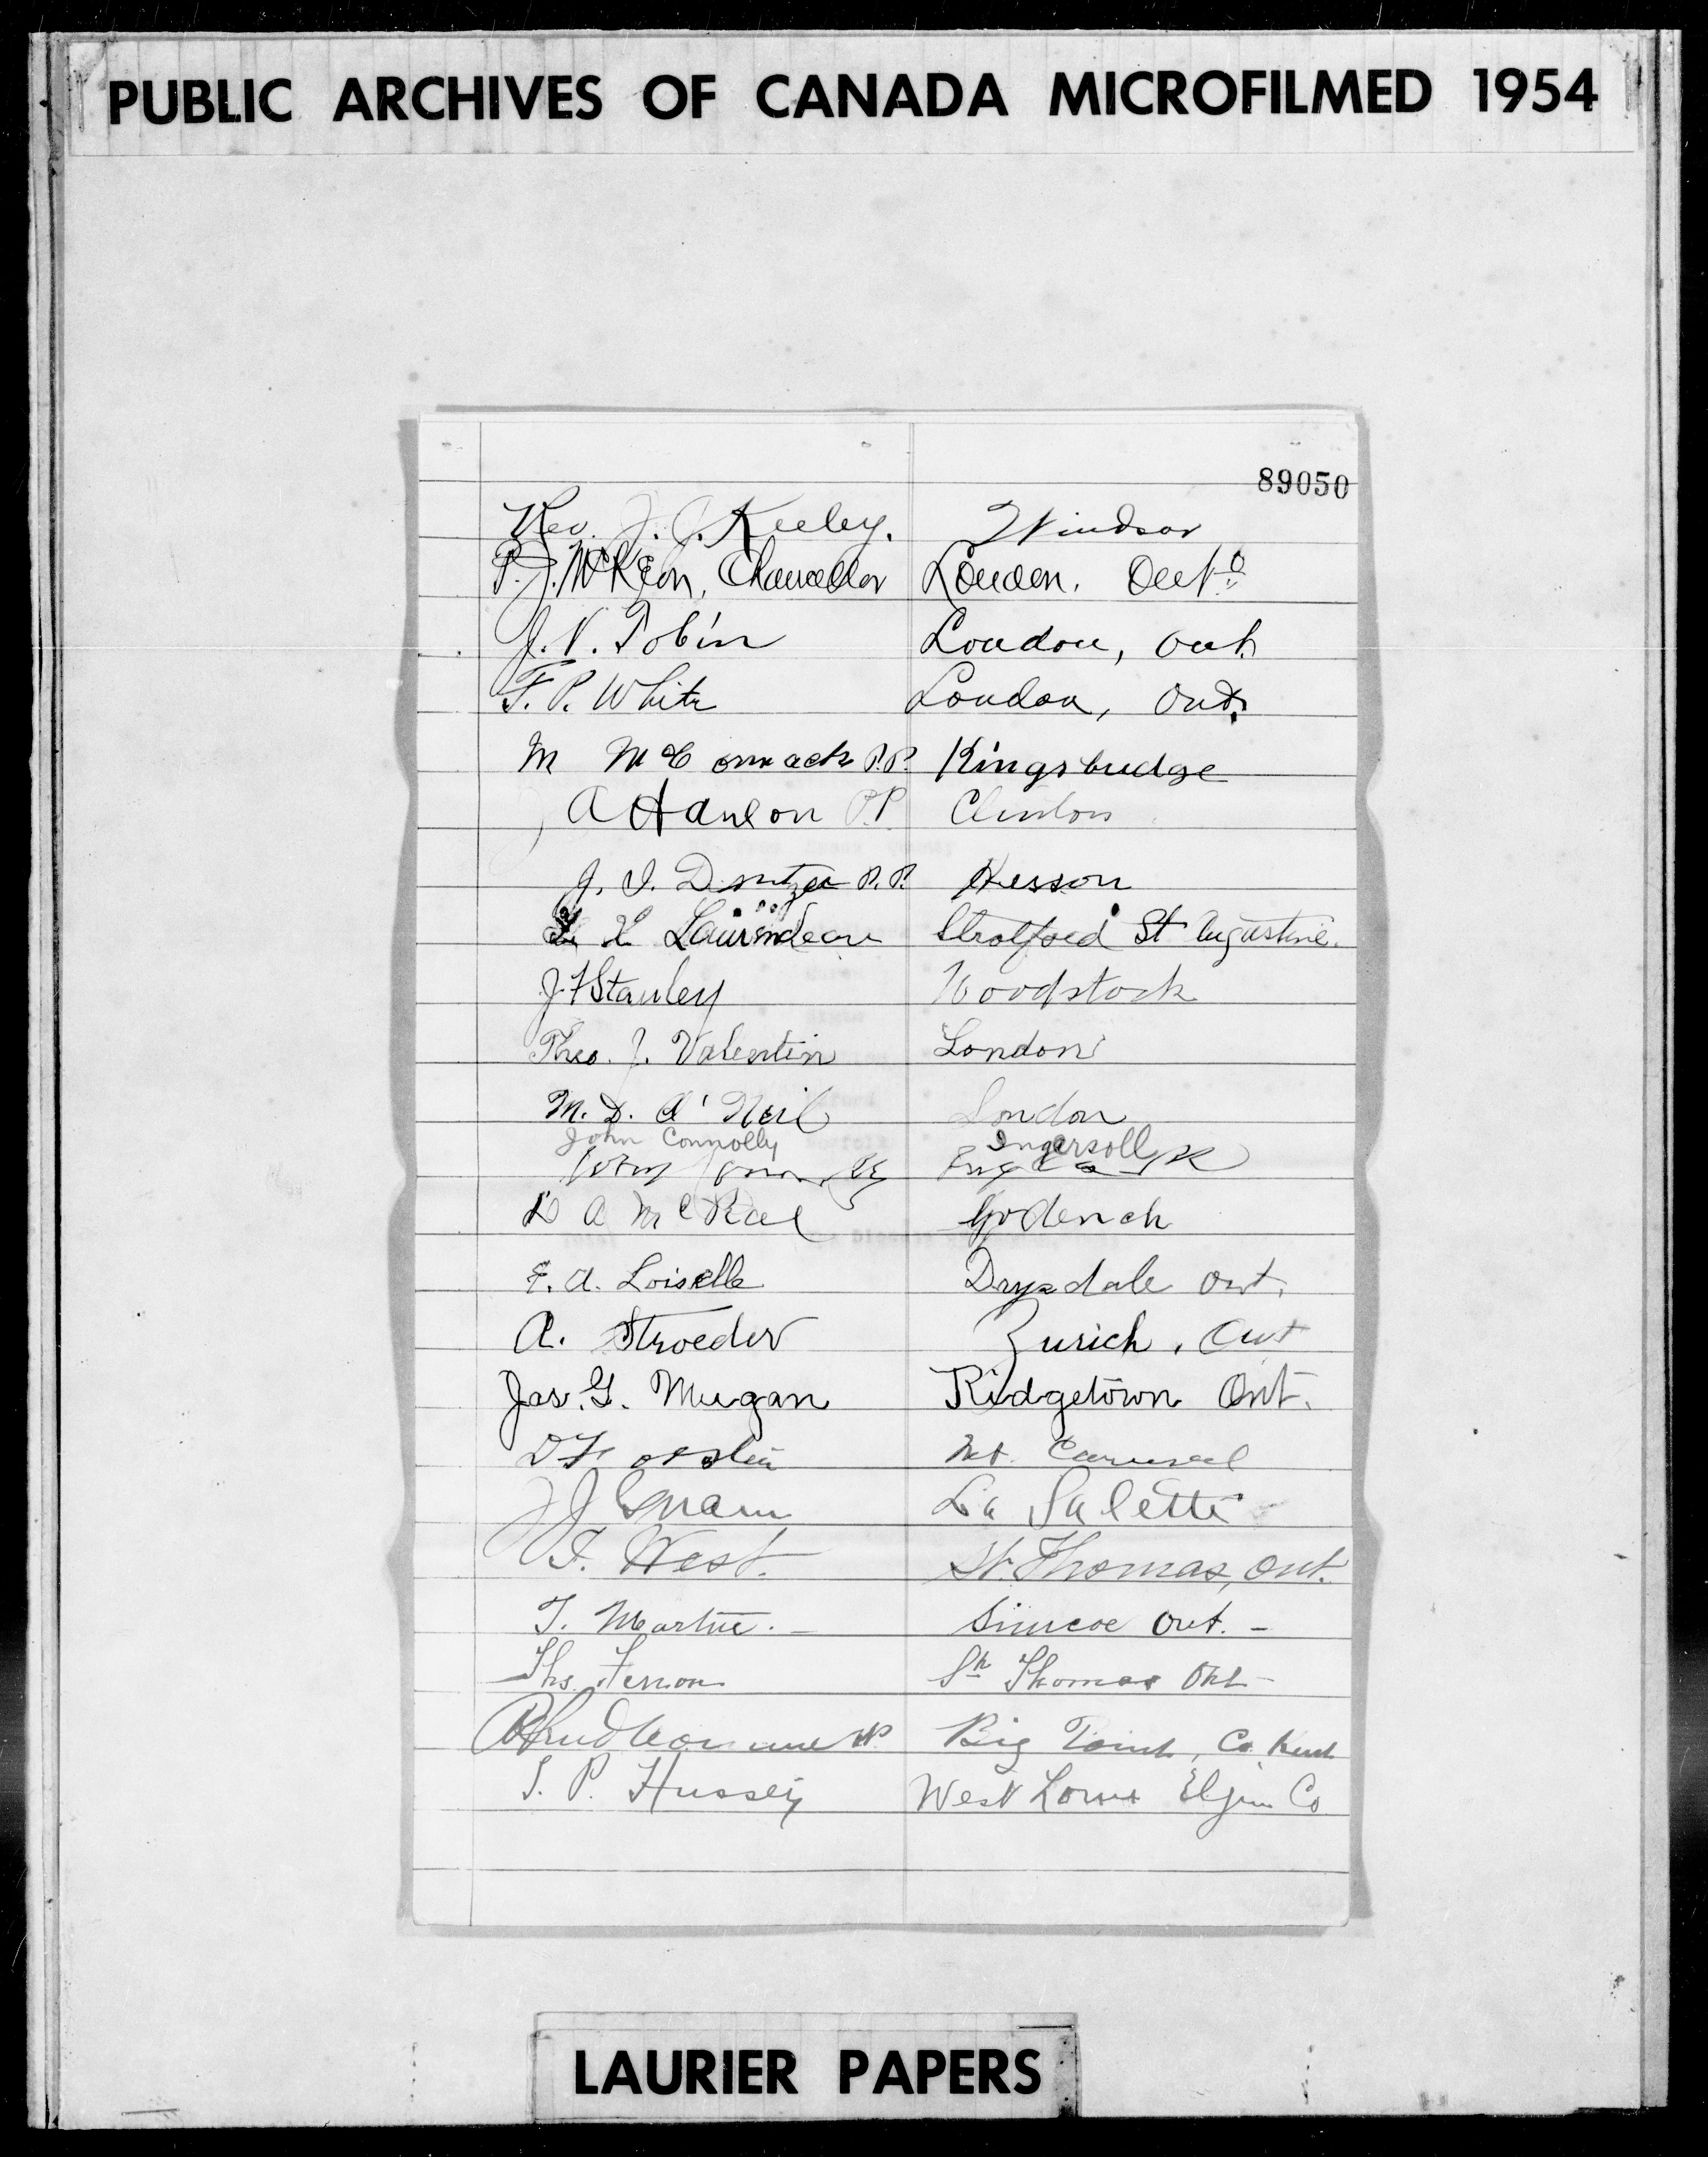 PUBLIC ARCHIVES OF CANADA MICROFILMED 1954
89050
Rev. J. J. Keeley. Windsor
P. J. McKeon, Chancellor London. Onto
J. V. Tobin London, Ont.
F. P. White London, Ont.
M McCormack P.P. Kingsbridge
A Hanlon P.P. Clinton
P.P. Hesson
L Laurendeau Stratford St Augustine.
J. F Stanley Woodstock
Theo. J. Valentin London
M. D. O'Neil London
John Connolly Ingersoll
D A McRae Goderich
E. A. Loiselle Drysdale Ont.
A. Stroeder Zurich, Ont
Jas. G. Mugan Ridgetown Ont.
D Forster Mt. Carmel
La Salette
West. St. Thomas, Ont.
T. Martin. — Simcoe Ont. —
Ths. Ferron St Thomas Ont
Big Point, Co. Kent
T. P. Hussey West Lorne Elgin Co
LAURIER PAPERS